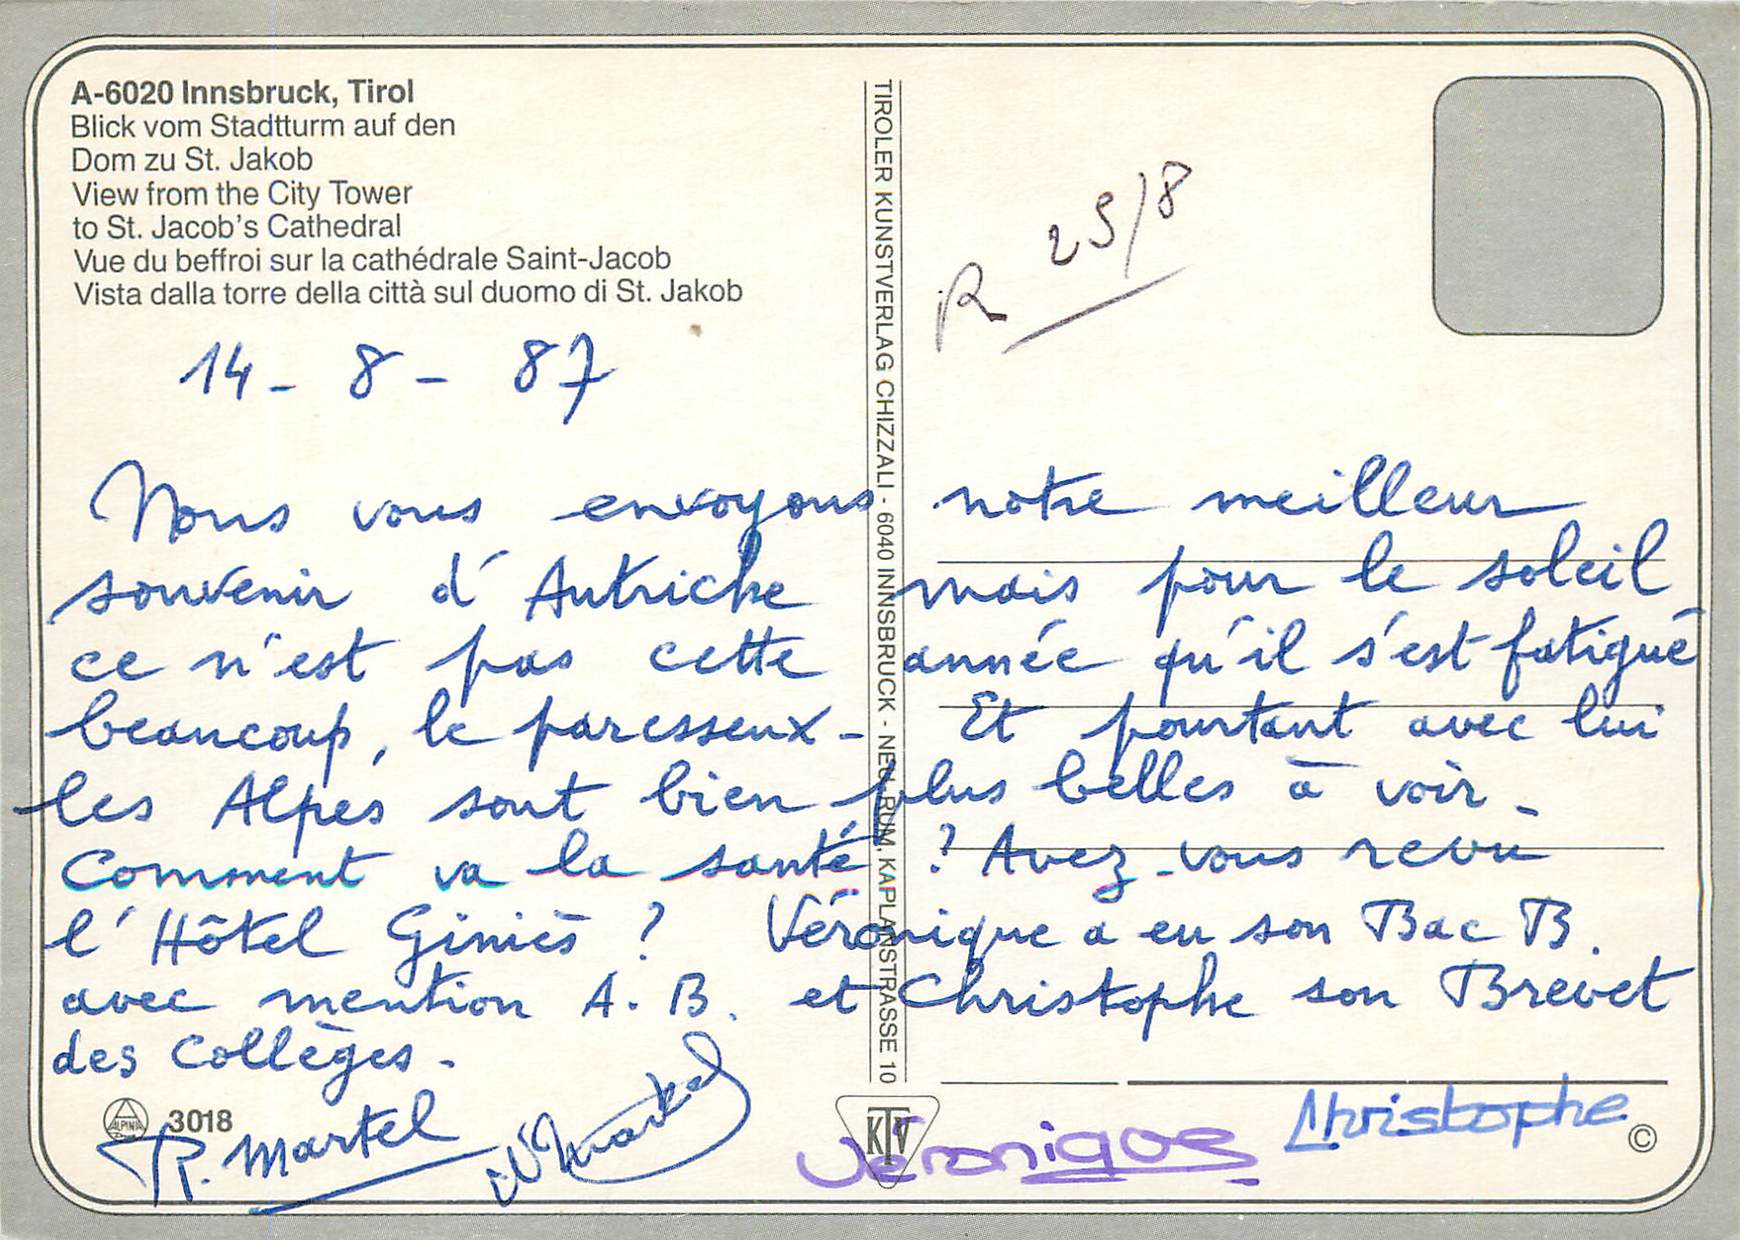 A-6020 Innsbruck, Tirol
Blick vom Stadtturm auf den
Dom zu St. Jakob
View from the City Tower
to St. Jacob's Cathedral
Vue du beffroi sur la cathédrale Saint-Jacob
Vista dalla torre della città sul duomo di St. Jakob
R 25/8
14 - 8 - 87
Nous vous envoyons notre meilleur
souvenir d'Autriche mais pour le soleil
ce n'est pas cette année qu'il s'est fatigué
beaucoup, le paresseux - Et pourtant avec lui
les Alpes sont bien plus belles à voir -
Comment va la santé ? Avez-vous revu
l'Hôtel Giniès ? Véronique a eu son Bac B.
avec mention A. B. et Christophe son Brevet
des Collèges -
TIROLER KUNSTVERLAG CHIZZALI - 6040 INNSBRUCK - NEU-RUM, KAPLANSTRASSE 10
ALPINA
3018
R. Martel
Martel
KTV
Véronique
Christophe
©